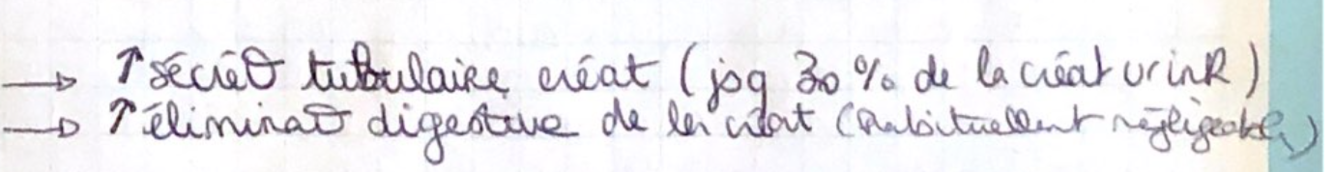 → ↑ sécrét° tubulaire créat (jsq 30 % de la créat urinR)
→ ↑ éliminat° digestive de la créat (habituellent négligeable)